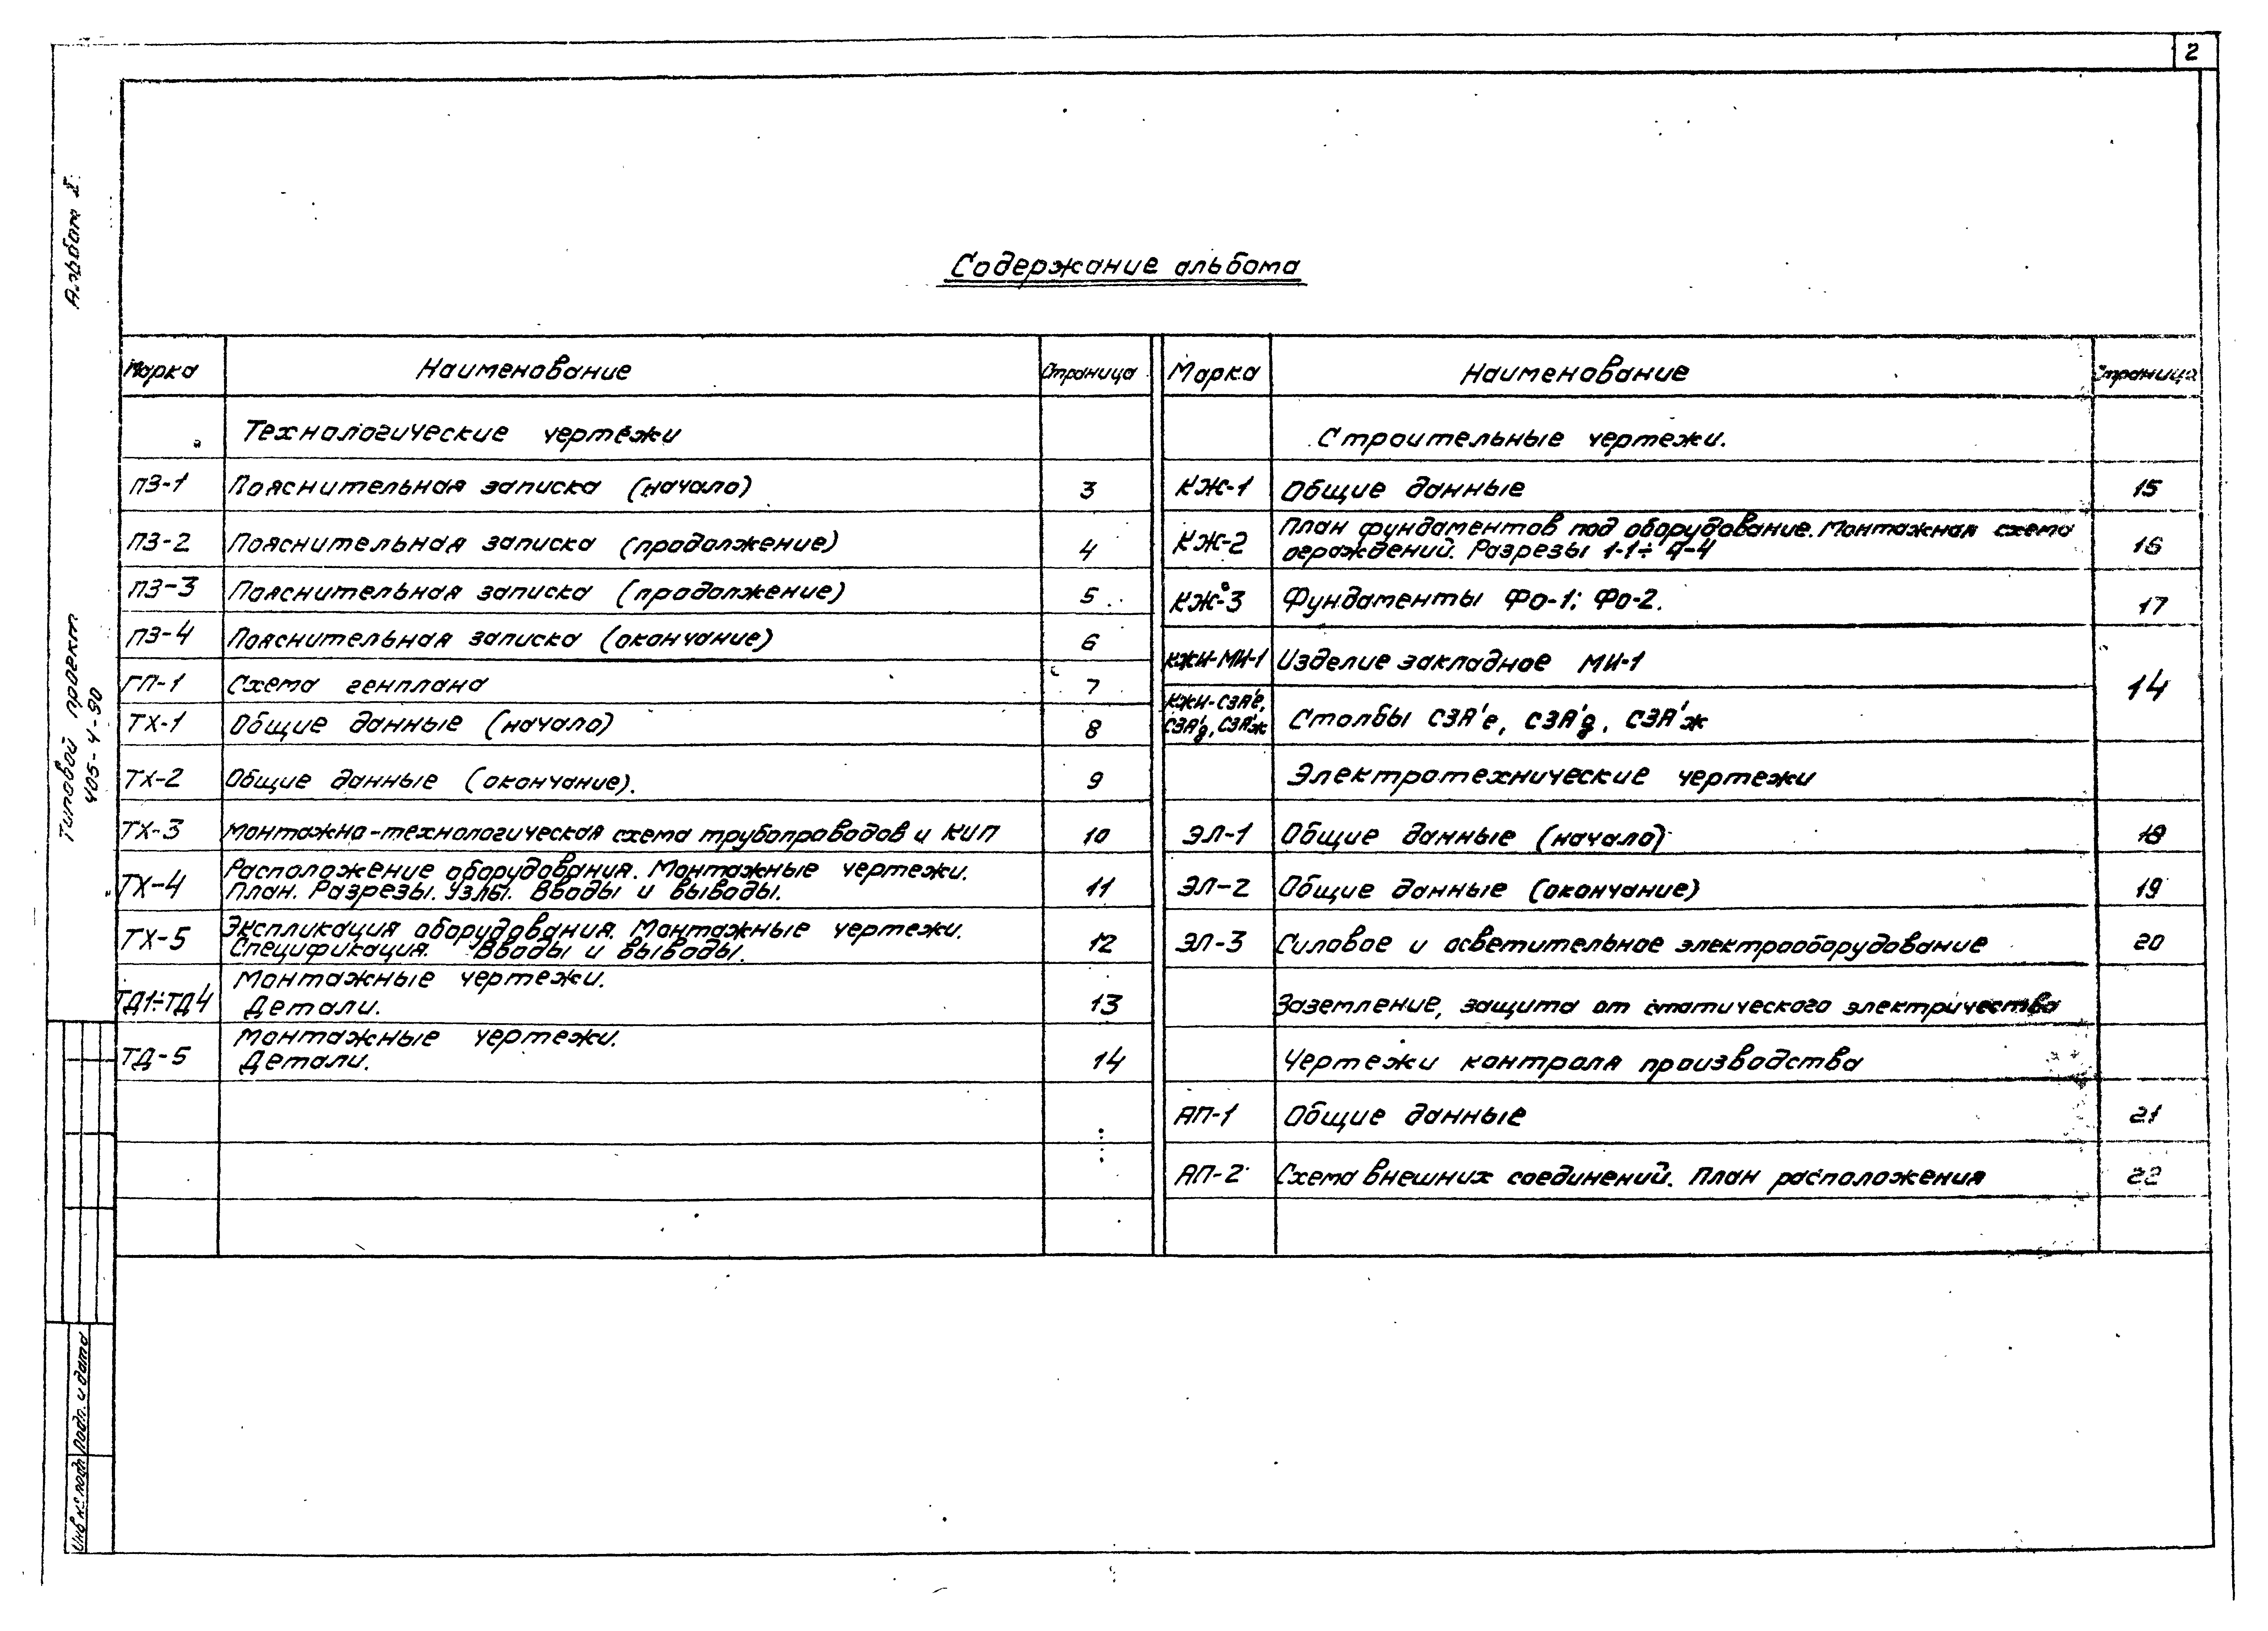 2
Альбом I
Типовой проект
405-4-90
Содержание альбома
Марка Наименование Страница
Технологические чертежи
ПЗ-1 Пояснительная записка (начало) 3
ПЗ-2 Пояснительная записка (продолжение) 4
ПЗ-3 Пояснительная записка (продолжение) 5
ПЗ-4 Пояснительная записка (окончание) 6
ГП-1 Схема генплана 7
ТХ-1 Общие данные (начало) 8
ТХ-2 Общие данные (окончание). 9
ТХ-3 Монтажно-технологическая схема трубопроводов и КИП 10
Расположение оборудования. Монтажные чертежи.
ТХ-4 План. Разрезы. Узлы. Вводы и выводы. 11
Экспликация оборудования. Монтажные чертежи.
ТХ-5 Спецификация. Вводы и выводы. 12
Монтажные чертежи.
ТД1÷ТД4 Детали. 13
Монтажные чертежи.
ТД-5 Детали. 14
Марка Наименование Страница
Строительные чертежи.
КЖ-1 Общие данные 15
План фундаментов под оборудование. Монтажная схема
КЖ-2 ограждений. Разрезы 1-1÷4-4 16
КЖ-3 Фундаменты ФО-1; ФО-2. 17
КЖИ-МИ-1 Изделие закладное МИ-1
14
КЖИ-СЗА'е,
СЗА'д, СЗА'ж Столбы СЗА'е, СЗА'д, СЗА'ж
Электротехнические чертежи
ЭЛ-1 Общие данные (начало) 18
ЭЛ-2 Общие данные (окончание) 19
ЭЛ-3 Силовое и осветительное электрооборудование 20
Заземление, защита от статического электричества
Чертежи контроля производства
АП-1 Общие данные 21
АП-2 Схема внешних соединений. План расположения 22
Подп. и дата
Инв № подл